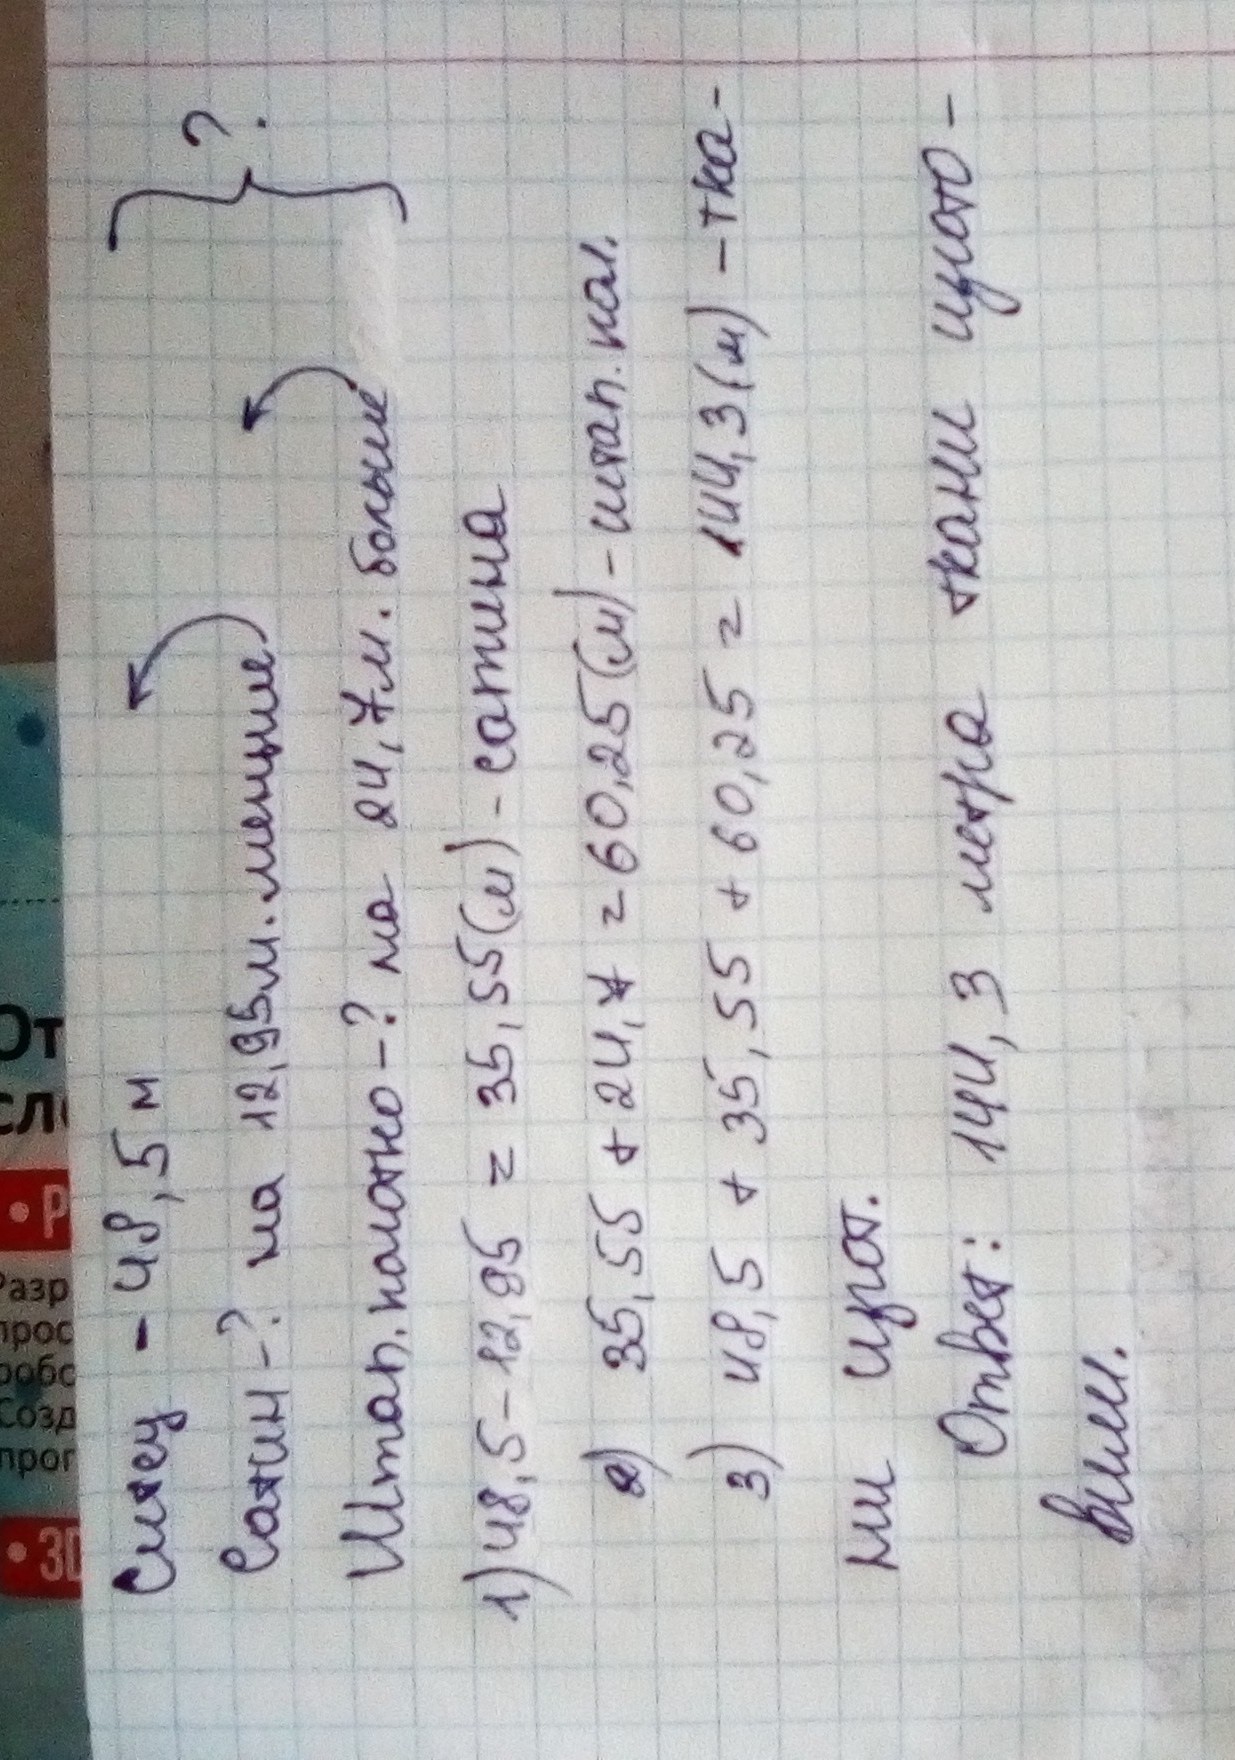 Ситец - 48,5 м
Сатин -? на 12,95м. меньше
?
Штап. полотно -? на 24,7м. больше
1) 48,5 - 12,95 = 35,55(м) - сатина
2) 35,55 + 24,7 = 60,25(м) - штап. пол.
3) 48,5 + 35,55 + 60,25 = 144,3(м) - тка-
ни изгот.
Ответ: 144,3 метра ткани изгото-
вили.
От
сл
• Р
Разр
прос
робо
Созд
прог
• 3D